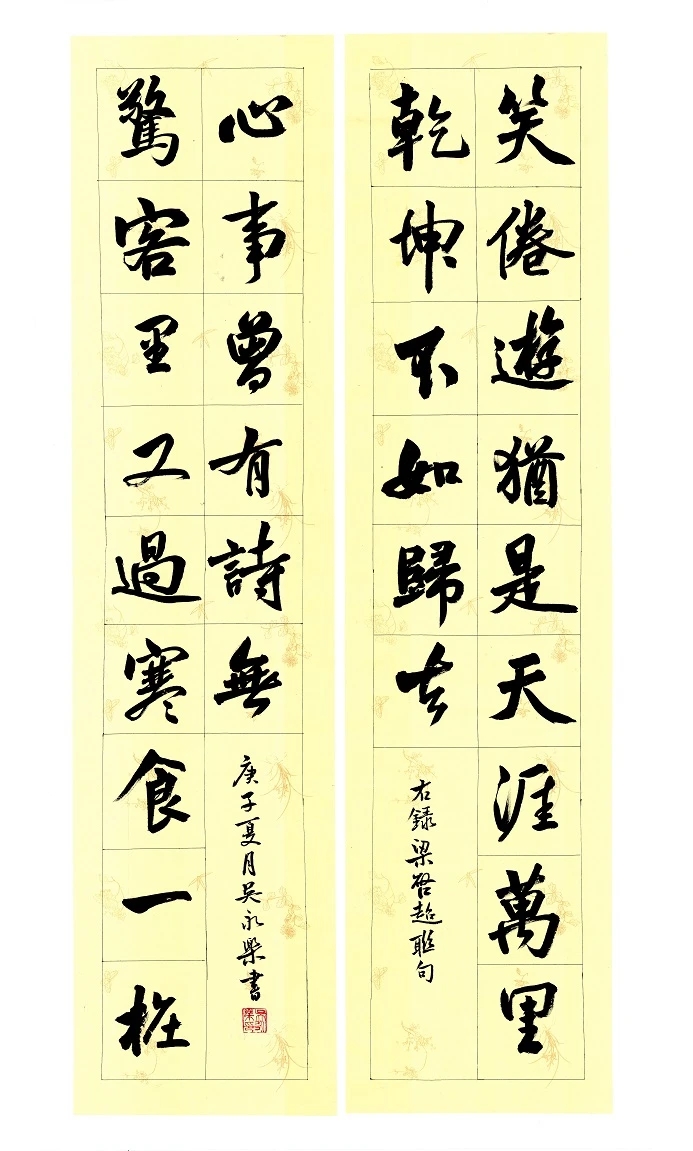 笑倦遊猶是天涯萬里
乾坤不如歸去
右錄梁啓超聯句
驚客里又過寒食一桩
心事曾有詩無
庚子夏月吳永樂書